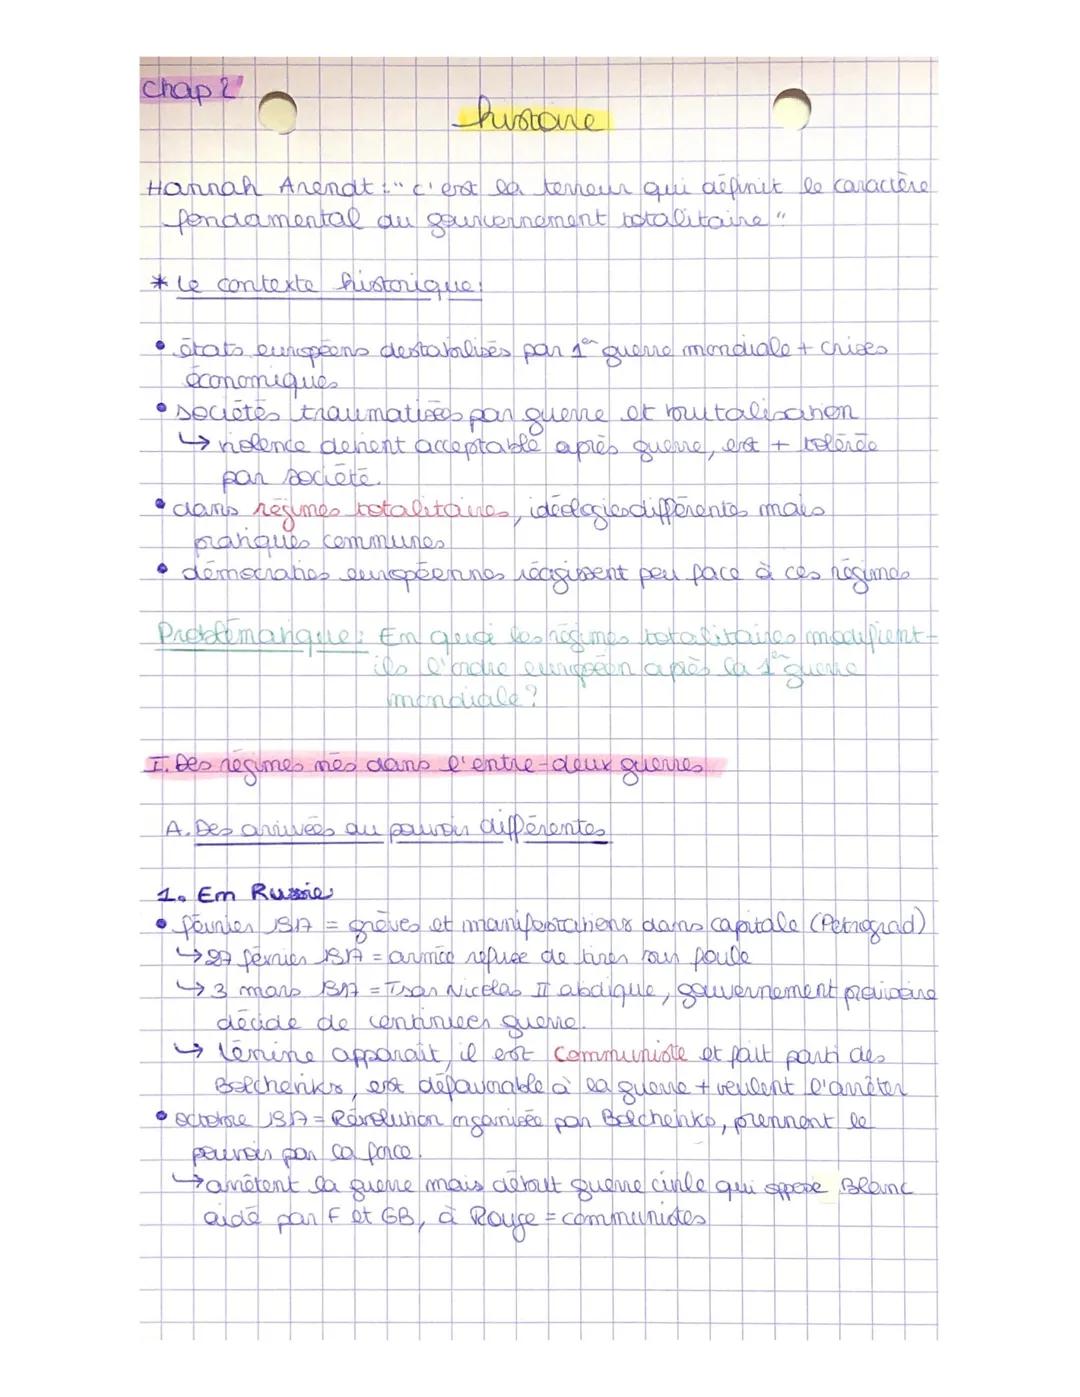 Chap 2
histoire
Hannah Arendt : "c'est la terreur qui définit le caractère
fondamental du gouvernement totalitaire"
* Le contexte historique :
• états européens destabilisés par 1ère guerre mondiale + crises
économiques
• sociétés traumatisées par guerre et brutalisation
↳ violence devient acceptable après guerre, est + tolérée
par société.
• dans régimes totalitaires, idéologies différentes mais
pratiques communes
• démocraties européennes réagissent peu face à ces régimes
Problématique : En quoi les régimes totalitaires modifient-
ils l'ordre européen après la 1ère guerre
mondiale ?
I. Des régimes nés dans l'entre-deux guerres
A. Des arrivées au pouvoir différentes
1. En Russie
• février 1917 = grèves et manifestations dans capitale (Petrograd)
↳ 27 février 1917 = armée refuse de tirer sur foule
↳ 3 mars 1917 = Tsar Nicolas II abdique, gouvernement provisoire
décide de continuer guerre.
↳ Lénine apparait, il est communiste et fait parti des
Bolcheviks, est défavorable à la guerre + veulent l'arrêter
• octobre 1917 = Révolution organisée par Bolcheviks, prennent le
pouvoir par la force.
↳ arrêtent la guerre mais début guerre civile qui oppose Blanc
aidé par F et GB, à Rouge = communistes